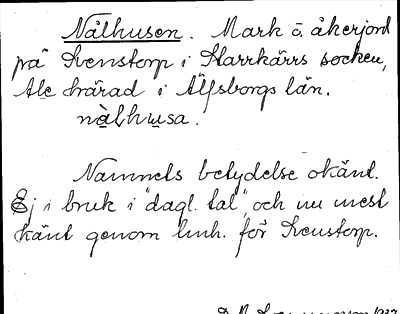 Nålhusen. Mark o. åkerjord
på Svenstorp i Starrkärrs socken,
Ale härad i Älfsborgs län.
nàlhu̱sa.
Namnets betydelse okänt.
Ej i bruk i "dagl. tal", och nu mest
känt genom lmh. för Svenstorp.